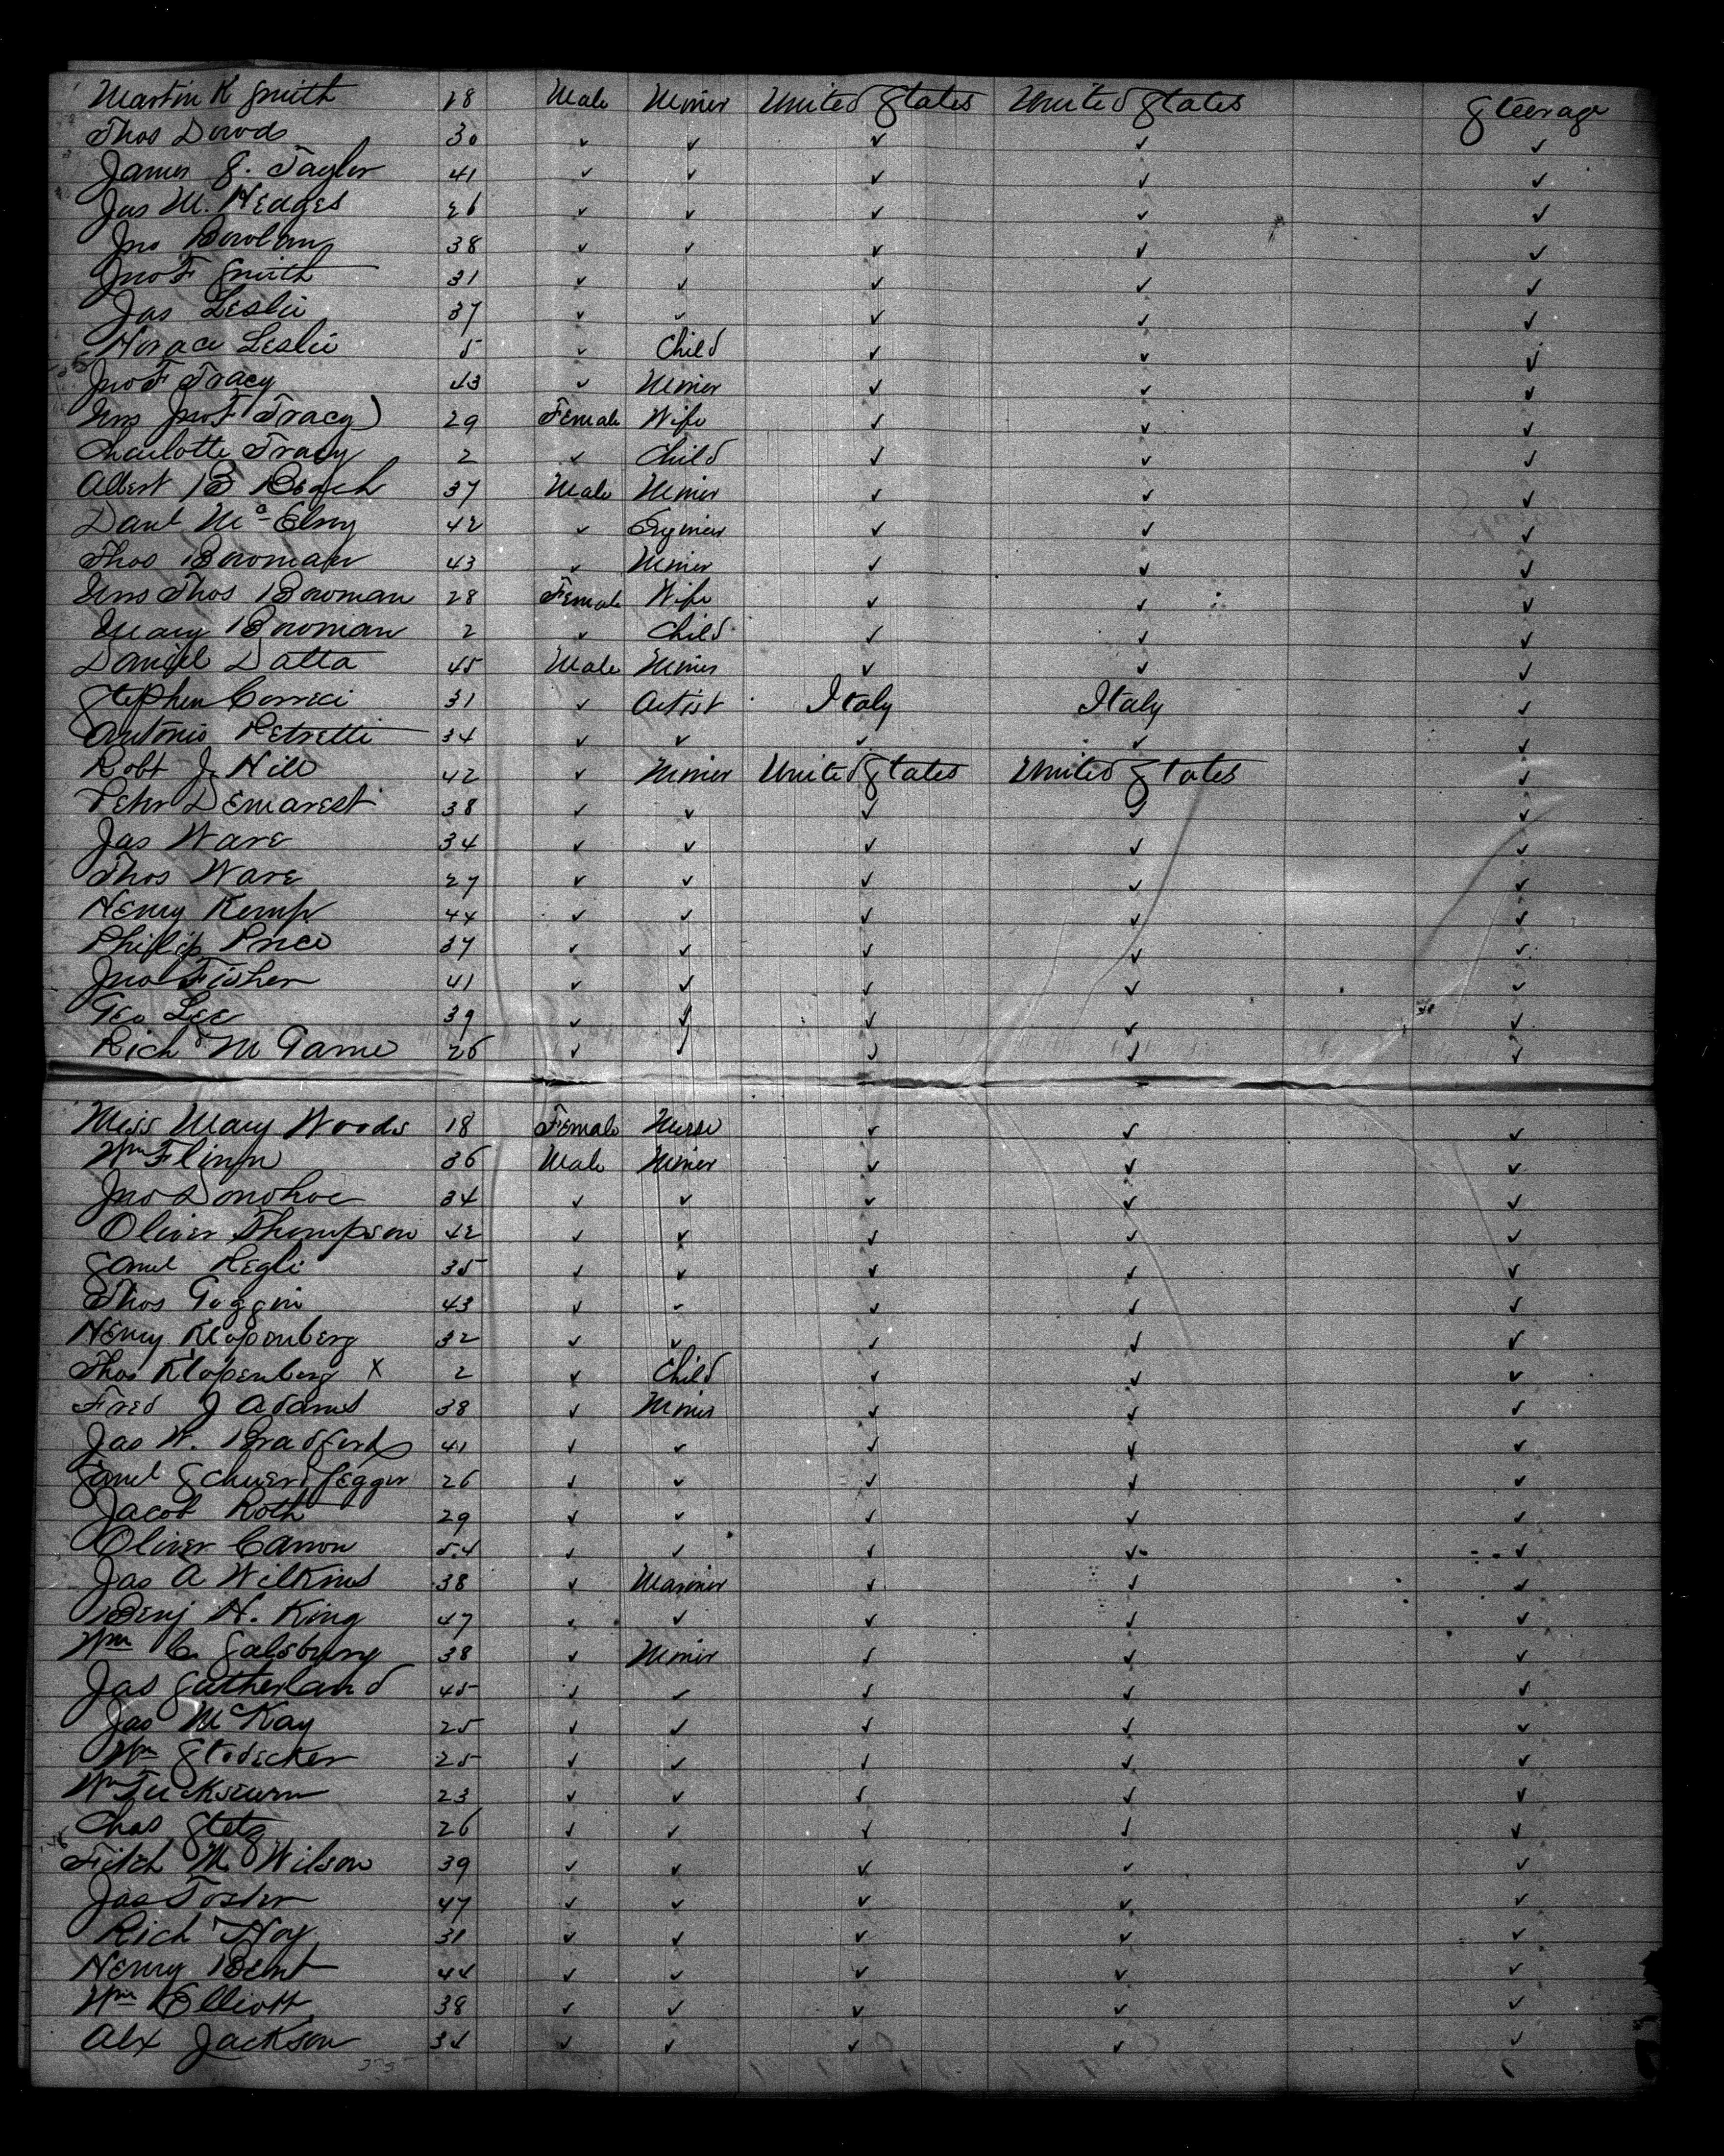 Martin K Smith 28 Male Miner United States United States Steerage
Thos Dowds 30 ✓ ✓ ✓ ✓ ✓
James S. Taylor 41 ✓ ✓ ✓ ✓ ✓
Jas M. Hedges 26 ✓ ✓ ✓ ✓ ✓
Jno Bowlan 38 ✓ ✓ ✓ ✓ ✓
Jno F Smith 31 ✓ ✓ ✓ ✓ ✓
Jas Leslie 37 ✓ ✓ ✓ ✓ ✓
Horace Leslie 5 ✓ Child ✓ ✓ ✓
Jno F Tracy 43 ✓ Miner ✓ ✓ ✓
Mrs Jno F Tracy 29 Female Wife ✓ ✓ ✓
Charlotte Tracy 2 ✓ Child ✓ ✓ ✓
Albert B Beach 37 Male Miner ✓ ✓ ✓
Danl McElroy 42 ✓ Engineer ✓ ✓ ✓
Thos Bowman 43 ✓ Miner ✓ ✓ ✓
Mrs Thos Bowman 28 Female Wife ✓ ✓ ✓
Mary Bowman 2 ✓ Child ✓ ✓ ✓
Daniel Datta 45 Male Miner ✓ ✓ ✓
Stephen 31 ✓ Artist Italy Italy ✓
Antonio Petretti 34 ✓ ✓ ✓ ✓ ✓
Robt J. Hill 42 ✓ Miner United States United States ✓
Peter Demarest 38 ✓ ✓ ✓ ✓ ✓
Jas Ware 34 ✓ ✓ ✓ ✓ ✓
Thos Ware 27 ✓ ✓ ✓ ✓ ✓
Henry Kemp 44 ✓ ✓ ✓ ✓ ✓
Phillip Price 37 ✓ ✓ ✓ ✓ ✓
Jno Fisher 41 ✓ ✓ ✓ ✓ ✓
Geo Lee 39 ✓ ✓ ✓ ✓ ✓
Richd M 26 ✓ ✓ ✓ ✓ ✓
Miss Mary Woods 18 Female Nurse ✓ ✓ ✓
Wm Flinn 36 Male Miner ✓ ✓ ✓
Jno Donohoe 34 ✓ ✓ ✓ ✓ ✓
Oliver Thompson 42 ✓ ✓ ✓ ✓ ✓
Saml Regli 35 ✓ ✓ ✓ ✓ ✓
Thos Goggin 43 ✓ ✓ ✓ ✓ ✓
Henry Klopenberg 32 ✓ ✓ ✓ ✓ ✓
Thos Klopenberg X 2 ✓ Child ✓ ✓ ✓
Fred J Adams 38 ✓ Miner ✓ ✓ ✓
Jas W. Bradford 41 ✓ ✓ ✓ ✓ ✓
Saml 26 ✓ ✓ ✓ ✓ ✓
Jacob Roth 29 ✓ ✓ ✓ ✓ ✓
Oliver Canon 54 ✓ ✓ ✓ ✓ ✓
Jas A Wilkins 38 ✓ Mariner ✓ ✓ ✓
Benj H. King 47 ✓ ✓ ✓ ✓ ✓
Wm C. Salsbury 38 ✓ Miner ✓ ✓ ✓
Jas Sutherland 45 ✓ ✓ ✓ ✓ ✓
Jas McKay 25 ✓ ✓ ✓ ✓ ✓
Wm Stodecker 25 ✓ ✓ ✓ ✓ ✓
Wm 23 ✓ ✓ ✓ ✓ ✓
Chas Stetz 26 ✓ ✓ ✓ ✓ ✓
Fitch M Wilson 39 ✓ ✓ ✓ ✓ ✓
Jas Foster 47 ✓ ✓ ✓ ✓ ✓
Rich Hoy 31 ✓ ✓ ✓ ✓ ✓
Henry Bent 44 ✓ ✓ ✓ ✓ ✓
Wm Elliott 38 ✓ ✓ ✓ ✓ ✓
Alx Jackson 34 ✓ ✓ ✓ ✓ ✓